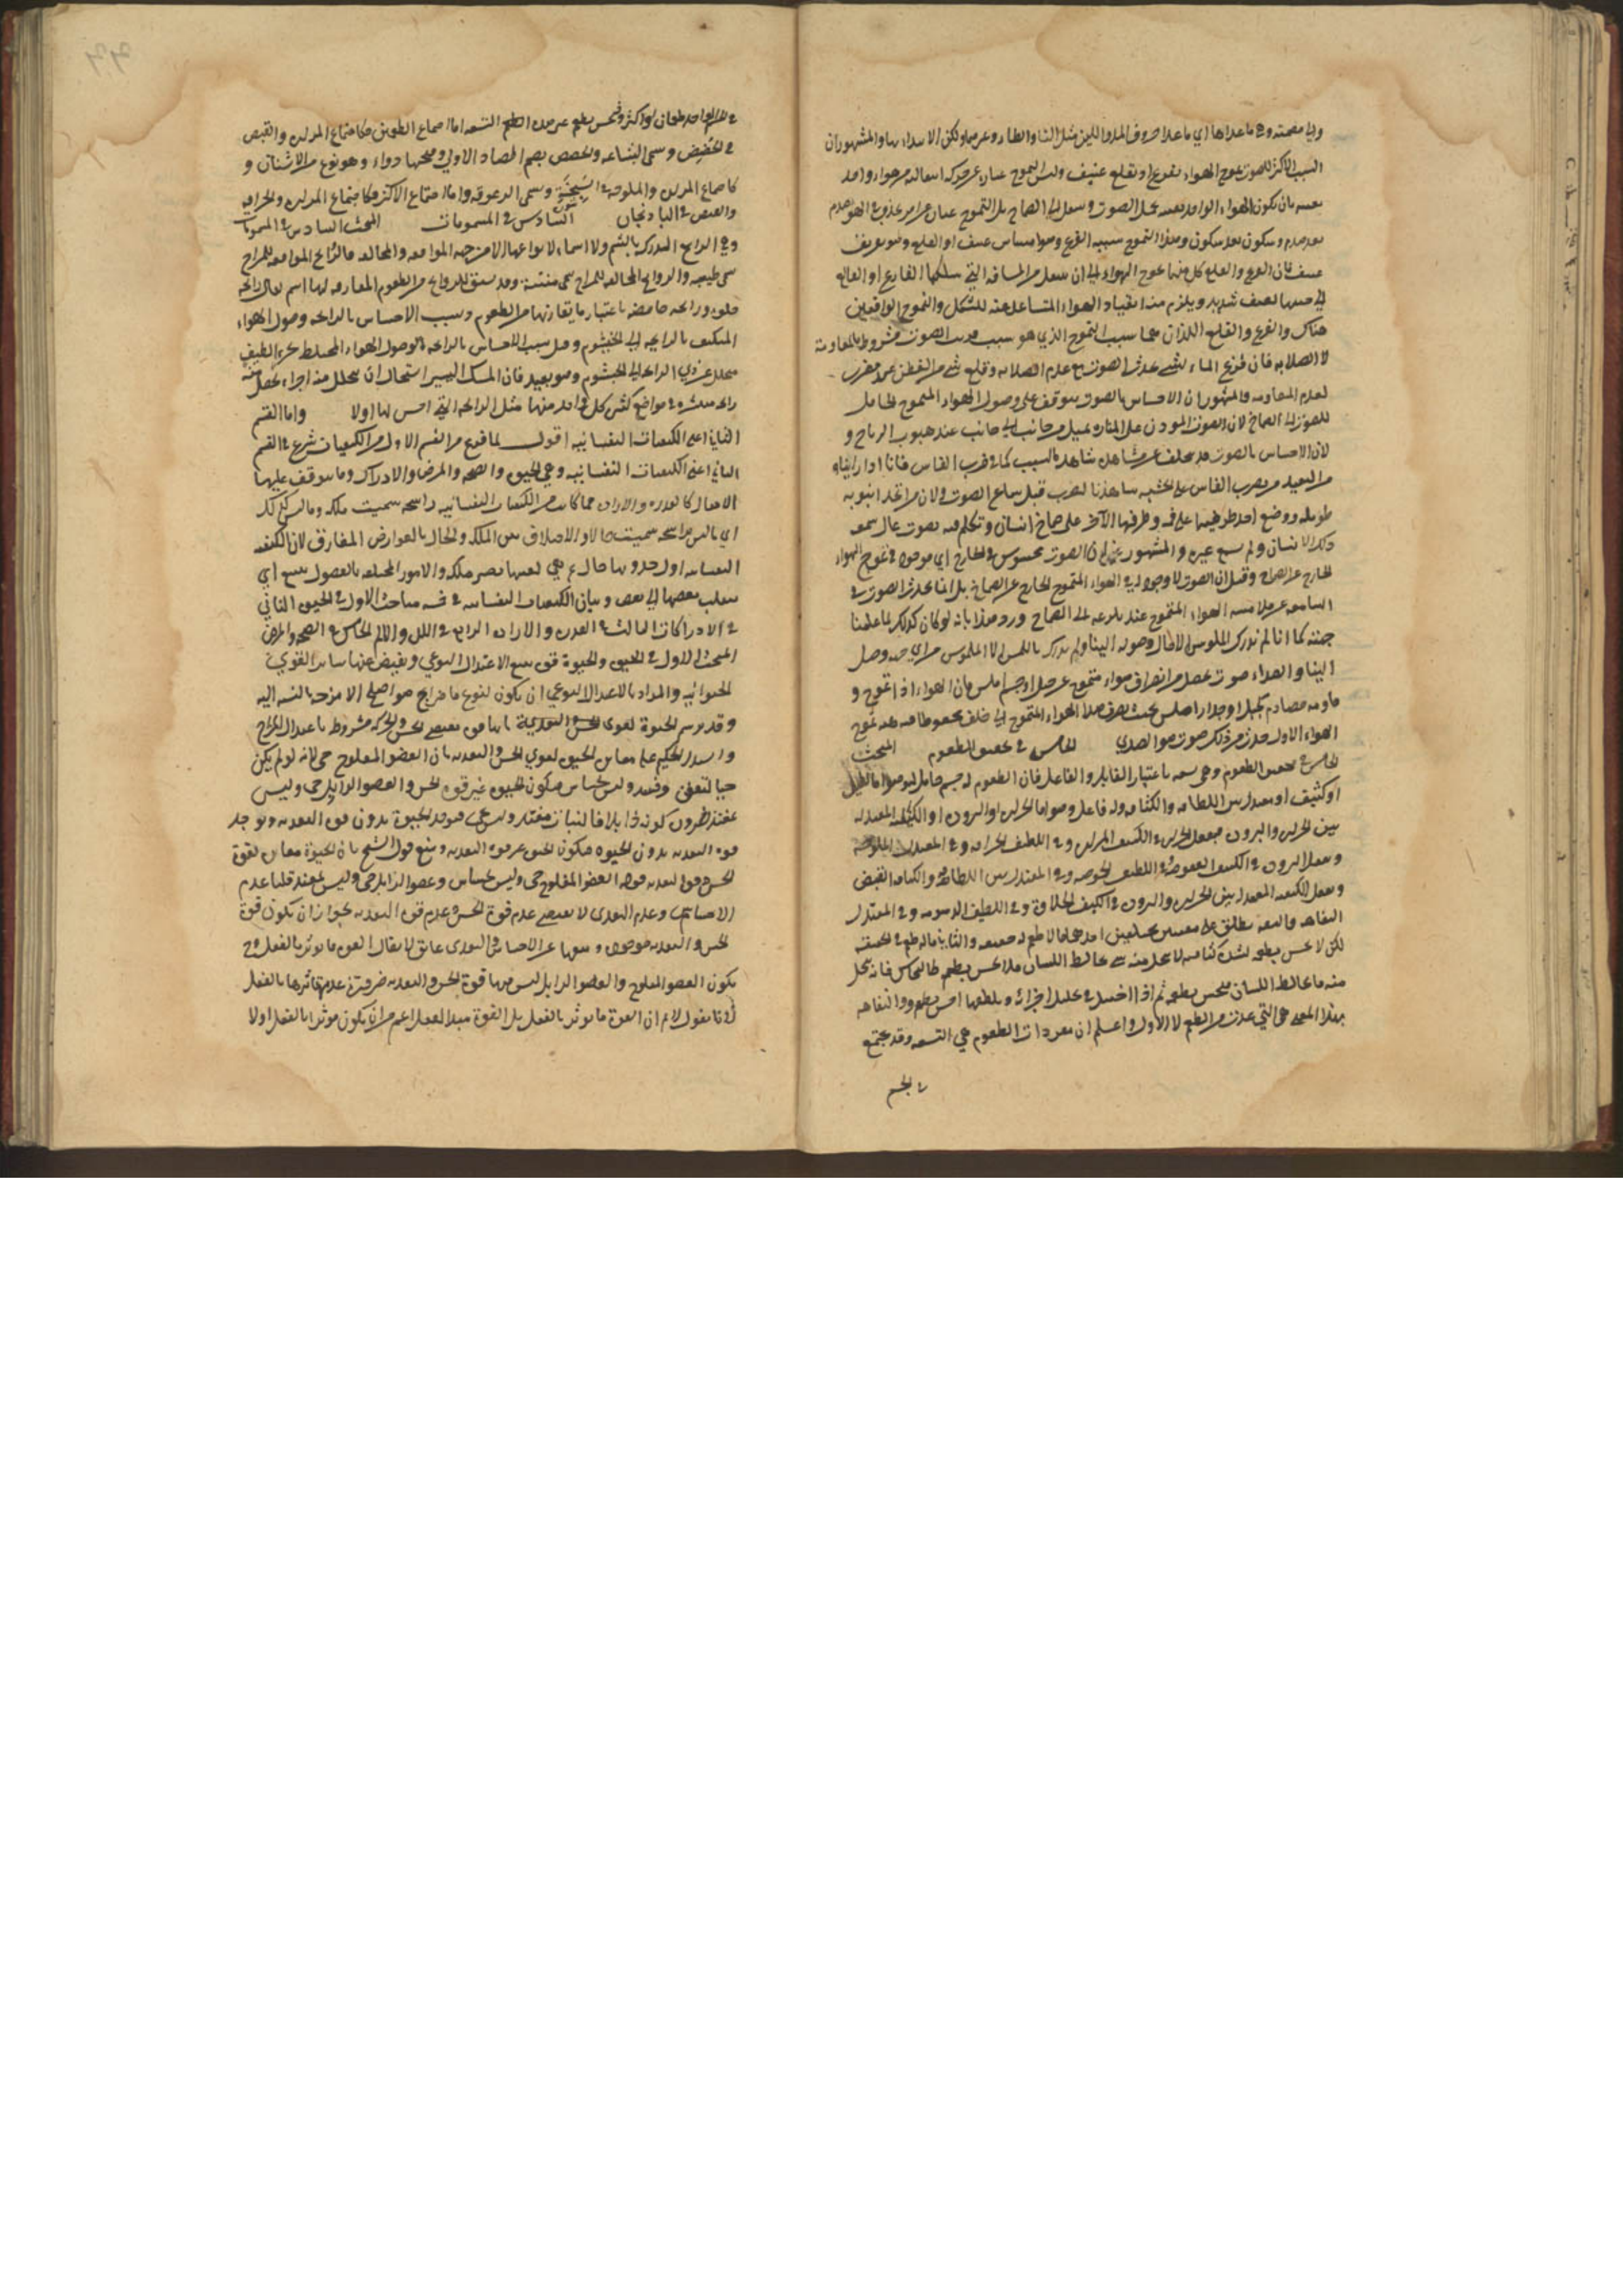 والى مصمتة وهي ما عداها اي ما عدا حروف المد واللين مثل التا والطا وغيرهما ولكن الابتداء بها والمشهور ان
السبب الاكثر للصوت تموج الهواء بقرع او بقلع عنيف وليس التموج عبارة عن حركة انتقالية من هواء واحد
بعينه بان يكون الهواء الواحد بعينه يحمل الصوت وينتقل الى الصماخ بل التموج عبارة عن امر يحدث في الهواء بصدم
بعد صدم وسكون بعد سكون وهذا التموج سببه القرع وهو امساس عنيف او القلع وهو تفريق
عنيف فان القرع والقلع كل منهما يموج الهواء الى ان ينتقل من المسافة التي سلكها القارع او القالع
الى جنبها بعنف شديد ويلزم منه انقياد الهواء المتباعد عنه للتشكل والتموج الواقعين
هناك والقرع والقلع اللذان هما سبب التموج الذي هو سبب الصوت مشروط بالمقاومة
لا الصلابة فان قرع الماء بشيء يحدث الصوت مع عدم الصلابة وقلع شيء من القطن
لعدم المقاومة والمشهور ان الاحساس بالصوت يتوقف على وصول الهواء المتموج الحامل
للصوت الى الصماخ لان صوت المؤذن على المنارة يميل من جانب الى جانب عند هبوب الرياح و
لان الاحساس بالصوت قد يتخلف عن مشاهدة السبب كما في ضرب الفاس فانا اذا راينا
من البعيد من يضرب الفاس على الخشبة شاهدنا الضرب قبل سماع الصوت ولان من اتخذ انبوبة
طويلة ووضع احد طرفيها على فمه وطرفها الآخر على صماخ انسان وتكلم فيه بصوت عال سمعه
ذلك الانسان ولم يسمع غيره والمشهور ان الصوت محسوس في الخارج اي موجود في تموج الهواء
الخارج عن الصماخ وقيل ان الصوت لا وجود له في الهواء المتموج الخارج عن الصماخ بل انما يحدث الصوت في
السامعة عن ملامسة الهواء المتموج عند بلوغه الى الصماخ ورد هذا بانه لو كان كذلك لما علمنا
جهته كما انا لم ندرك الملموس الا حال وصوله الينا ولم ندرك باللمس ان الملموس من اي جهة وصل
الينا والصداء صوت يحصل من انصراف هواء متموج عن جبل او جسم املس فان الهواء اذا تموج و
قاومه مصادم كجبل او جدار املس بحيث يصرف هذا الهواء المتموج الى خلف
الهواء الاول حدث من ذلك صوت هو الصدى الخامس في تحقيق الطعوم المبحث
الخامس في تحقيق الطعوم وهي تسعة باعتبار القابل والفاعل فان الطعوم له جسم حامل
او كثيف او معتدل بين اللطافة والكثافة وله فاعل وهو اما الحرارة او البرودة او الكيفية المعتدلة
بين الحرارة والبرودة فيفعل الحرارة في الكثيف المرارة وفي اللطيف الحرافة وفي المعتدل الملوحة
ويفعل البرودة في الكثيف العفوصة وفي اللطيف الحموضة وفي المعتدل بين اللطافة والكثافة القبض
ويفعل الكيفية المعتدلة بين الحرارة والبرودة في الكثيف الحلاوة وفي اللطيف الدسومة وفي المعتدل
التفاهة والتفه يطلق على معنيين مختلفين احدهما ما لا طعم له حقيقة والثاني ما له طعم في الحقيقة
لكن لا يحس بطعمه لشدة كثافته لا يتحلل منه شيء يخالط اللسان فلا يحس بطعمه كالنحاس فانه لا يتحلل
منه ما يخالط اللسان فيحس بطعمه ثم اذا احتيل في تحليل اجزائه وتلطيفها احس بطعمه والتفاهة
بهذا المعنى هي التي عدت من الطعوم لا الاول واعلم ان مفردات الطعوم هي التسعة وقد يجتمع
في الجسم
في الجسم الواحد طعمان او اكثر فيحس بطعم غير هذه الطعوم التسعة اما اجتماع الطعمين فكاجتماع المرارة والقبض
في الحضض وسمى البشاعة والحضض بضم الضاد الاولى وفتحها دواء وهو نوع من الاشنان و
كاجتماع المرارة والملوحة في السبخة وسمى الزعوقة واما اجتماع الاكثر فكاجتماع المرارة والحرافة
والقبض في الباذنجان السادس في المشمومات المبحث السادس في المشمومات
وهي الروائح المدركة بالشم ولا اسماء لانواعها الا من جهة الموافقة والمخالفة فالروائح الموافقة للمزاج
سمى طيبة والروائح المخالفة للمزاج سمى منتنة وقد يشتق للروائح من الطعوم المقارنة لها اسم فيقال رائحة
حلوة ورائحة حامضة باعتبار ما يقارنها من الطعوم وسبب الاحساس بالرائحة وصول الهواء
المتكيف بالرائحة الى الخيشوم وقيل سبب الاحساس بالرائحة وصول الهواء المختلط بجزء لطيف
متحلل عن ذي الرائحة الى الخيشوم وهو بعيد فان المسك اليسير استحال ان يتحلل منه اجزاء يحصل منه
رائحة منتشرة في مواضع كثيرة كل واحد منها مثل الرائحة التي احس بها اولا واما القسم
الثاني اعني الكيفيات النفسانية اقول لما فرغ من القسم الاول من الكيفيات شرع في القسم
الثاني اعني الكيفيات النفسانية وهي الحيوة والصحة والمرض والادراك وما يتوقف عليها
الافعال كالقدرة والارادة فما كانت من الكيفيات النفسانية راسخة سميت ملكة وما ليس كذلك
اي ما ليس براسخة سميت حالا والاختلاف بين الملكة والحال بالعوارض المفارق لان الكيفية
النفسانية اول حدوثها حال ثم هي بعينها تصير ملكة والامور المختلفة بالفصول يمتنع ان
ينقلب بعضها الى بعض وبيان الكيفيات النفسانية في خمسة مباحث الاول في الحيوة الثاني
في الادراكات الثالث في القدرة والارادة الرابع في اللذة والالم الخامس في الصحة والمرض
المبحث الاول في الحيوة والحيوة قوة تتبع الاعتدال النوعي ويفيض عنها سائر القوى
الحيوانية والمراد بالاعتدال النوعي ان يكون لنوع ما مزاج هو اصلح الامزجة بالنسبة اليه
وقد يرسم الحيوة بانها قوة تقتضي الحس والحركة مشروطة باعتدال المزاج
واستدل الحكيم على مغايرة الحيوة لقوى الحس والتغذية بان العضو المفلوج حي لانه لو لم يكن
حيا لتعفن وفسد وليس بحساس فيكون الحيوة غير قوة الحس والعضو الذابل حي وليس
فالنبات مغتذ وليس بحي فيوجد الحيوة بدون قوة التغذية ويوجد
قوة التغذية بدون الحيوة فيكون الحيوة غير قوة التغذية ومنع قول الشيخ بان الحيوة مغايرة لقوة
الحس وقوة التغذية العضو المفلوج حي وليس بحساس وعضو الذابل حي وليس بمغتذ قلنا عدم
الاحساس وعدم التغذي لا يقتضي عدم قوة الحس وعدم قوة التغذية بجواز ان يكون قوة
الحس والتغذية موجودة ومنعها عن الاحساس والتغذي عائق لا يقال القوة ما يؤثر بالفعل فلا
يكون العضو المفلوج والعضو الذابل ليس فيهما قوة الحس والتغذية ضرورة عدم تاثيرها بالفعل
لانا نقول لا نم ان القوة ما يؤثر بالفعل بل القوة مبدا الفعل اعم من ان يكون مؤثرا بالفعل اولا